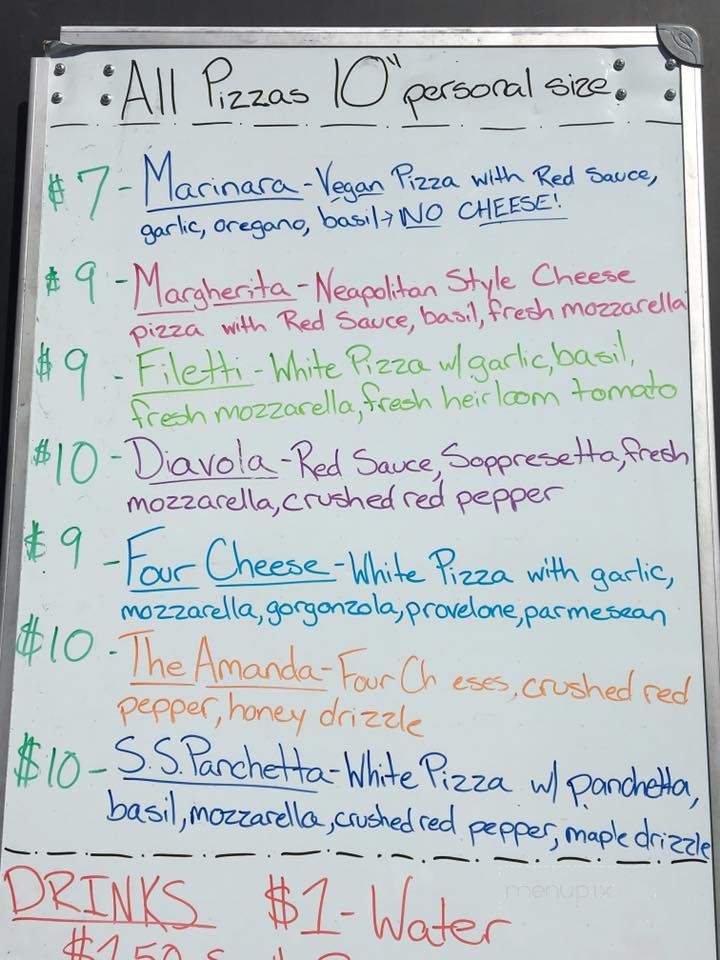 All Pizzas 10" personal size
$7 - Marinara - Vegan Pizza with Red Sauce,
garlic, oregano, basil → NO CHEESE!
$9 - Margherita - Neapolitan Style Cheese
pizza with Red Sauce, basil, fresh mozzarella
$9 - Filetti - White Pizza w/ garlic, basil,
fresh mozzarella, fresh heirloom tomato
$10 - Diavola - Red Sauce, Soppresetta, fresh
mozzarella, crushed red pepper
$9 - Four Cheese - White Pizza with garlic,
mozzarella, gorgonzola, provelone, parmesean
$10 - The Amanda - Four Ch eses, crushed red
pepper, honey drizzle
$10 - S.S. Panchetta - White Pizza w/ panchetta,
basil, mozzarella, crushed red pepper, maple drizzle
DRINKS $1 - Water
menupix
$1.50